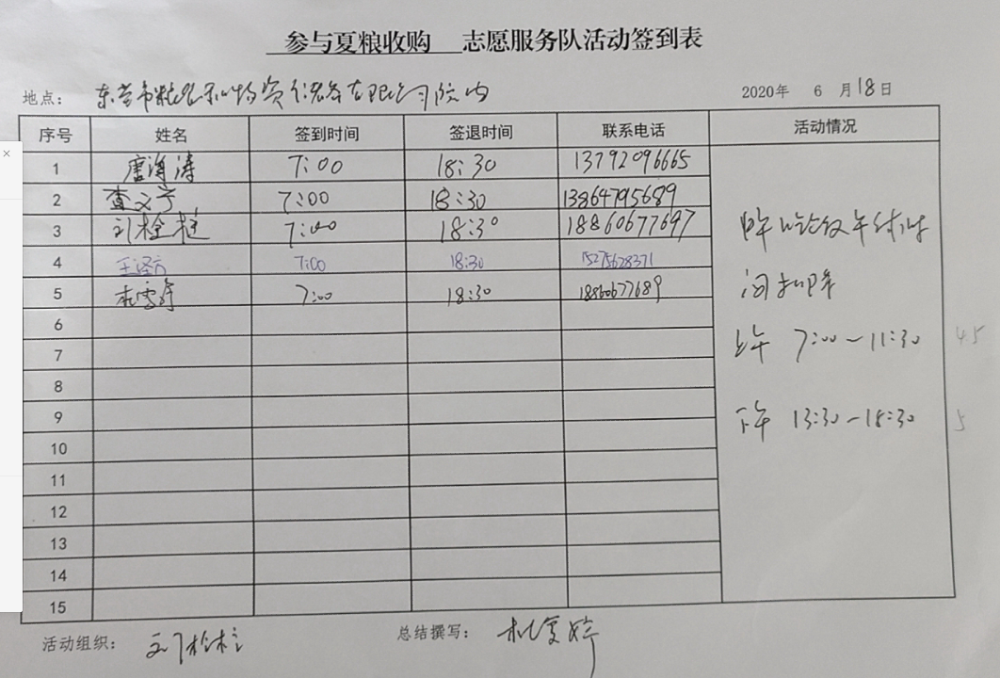 参与夏粮收购 志愿服务队活动签到表
地点： 东营市粮食和物资储备有限公司院内 2020年 6 月18日
序号 姓名 签到时间 签退时间 联系电话 活动情况
1 唐海涛 7:00 18:30 13792096665
2 查文宇 7:00 18:30 13864795689
3 7:00 18:30 18860677697
4 7:00 18:30 15275628371
5 7:00 18:30 18860677689
6
7
8
9
10
11
12
13
14
15
上午 7:00～11:30 45
下午 13:30－18:30 5
活动组织：
总结撰写：